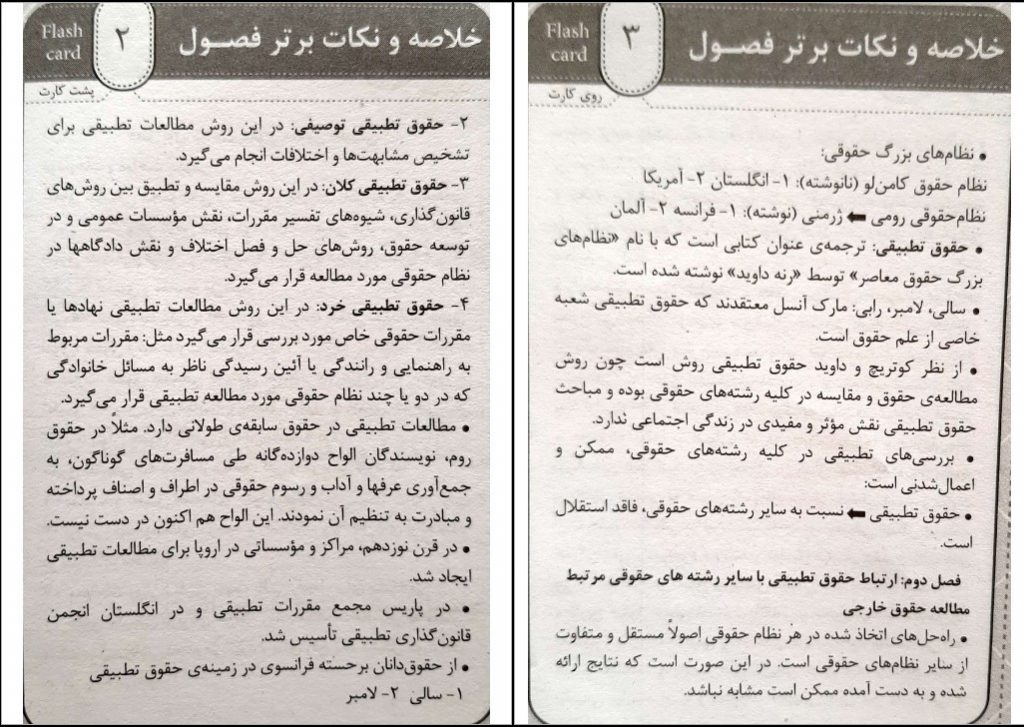 خلاصه و نکات برتر فصول
۲
Flash
card
پشت کارت
۲- حقوق تطبیقی توصیفی: در این روش مطالعات تطبیقی برای
تشخیص مشابهت‌ها و اختلافات انجام می‌گیرد.
۳- حقوق تطبیقی کلان: در این روش مقایسه و تطبیق بین روش‌های
قانون‌گذاری، شیوه‌های تفسیر مقررات، نقش مؤسسات عمومی و در
توسعه حقوق، روش‌های حل و فصل اختلاف و نقش دادگاهها در
نظام حقوقی مورد مطالعه قرار می‌گیرد.
۴- حقوق تطبیقی خرد: در این روش مطالعات تطبیقی نهادها یا
مقررات حقوقی خاص مورد بررسی قرار می‌گیرد مثل: مقررات مربوط
به راهنمایی و رانندگی یا آئین رسیدگی ناظر به مسائل خانوادگی
که در دو یا چند نظام حقوقی مورد مطالعه تطبیقی قرار می‌گیرد.
• مطالعات تطبیقی در حقوق سابقه‌ی طولانی دارد. مثلاً در حقوق
روم، نویسندگان الواح دوازده‌گانه طی مسافرت‌های گوناگون، به
جمع‌آوری عرفها و آداب و رسوم حقوقی در اطراف و اصناف پرداخته
و مبادرت به تنظیم آن نمودند. این الواح هم اکنون در دست نیست.
• در قرن نوزدهم، مراکز و مؤسساتی در اروپا برای مطالعات تطبیقی
ایجاد شد.
• در پاریس مجمع مقررات تطبیقی و در انگلستان انجمن
قانون‌گذاری تطبیقی تأسیس شد.
• از حقوق‌دانان برحسته فرانسوی در زمینه‌ی حقوق تطبیقی
۱- سالی ۲- لامبر
خلاصه و نکات برتر فصول
۳
Flash
card
روی کارت
• نظام‌های بزرگ حقوقی:
نظام حقوق کامن‌لو (نانوشته): ۱- انگلستان ۲- آمریکا
نظام‌حقوقی رومی ⬅ ژرمنی (نوشته): ۱- فرانسه ۲- آلمان
• حقوق تطبیقی: ترجمه‌ی عنوان کتابی است که با نام «نظام‌های
بزرگ حقوق معاصر» توسط «رنه داوید» نوشته شده است.
• سالی، لامبر، رابی: مارک آنسل معتقدند که حقوق تطبیقی شعبه
خاصی از علم حقوق است.
• از نظر کوتریچ و داوید حقوق تطبیقی روش است چون روش
مطالعه‌ی حقوق و مقایسه در کلیه رشته‌های حقوقی بوده و مباحث
حقوق تطبیقی نقش مؤثر و مفیدی در زندگی اجتماعی ندارد.
• بررسی‌های تطبیقی در کلیه رشته‌های حقوقی، ممکن و
اعمال‌شدنی است:
• حقوق تطبیقی ⬅ نسبت به سایر رشته‌های حقوقی، فاقد استقلال
است.
فصل دوم: ارتباط حقوق تطبیقی با سایر رشته های حقوقی مرتبط
مطالعه حقوق خارجی
• راه‌حل‌های اتخاذ شده در هر نظام حقوقی اصولاً مستقل و متفاوت
از سایر نظام‌های حقوقی است. در این صورت است که نتایج ارائه
شده و به دست آمده ممکن است مشابه نباشد.